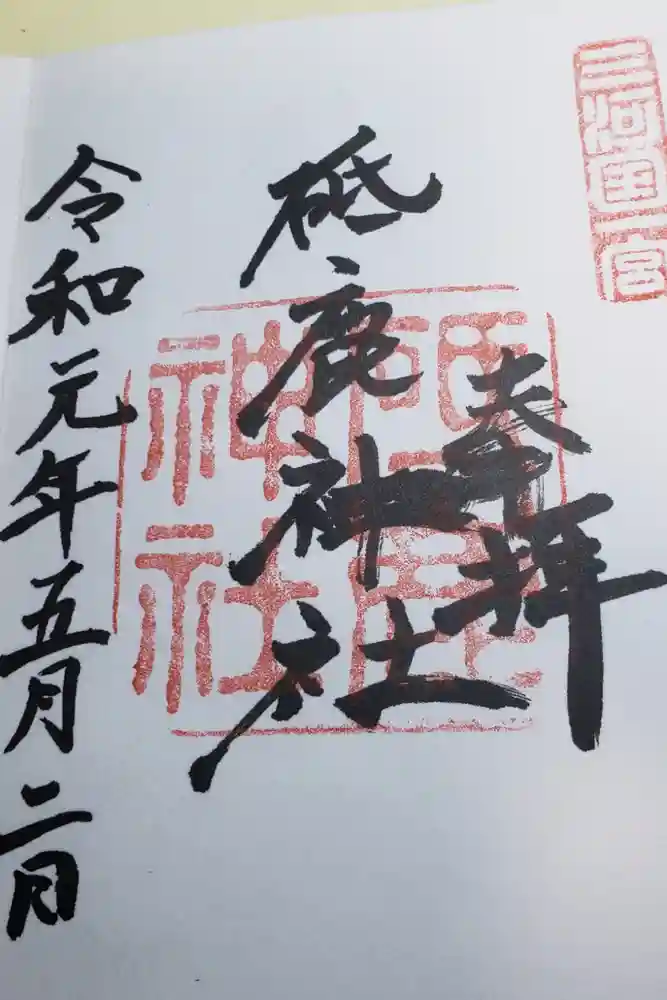 三河国一宮
奉拝
砥鹿神社
砥鹿
神社
令和元年五月二日